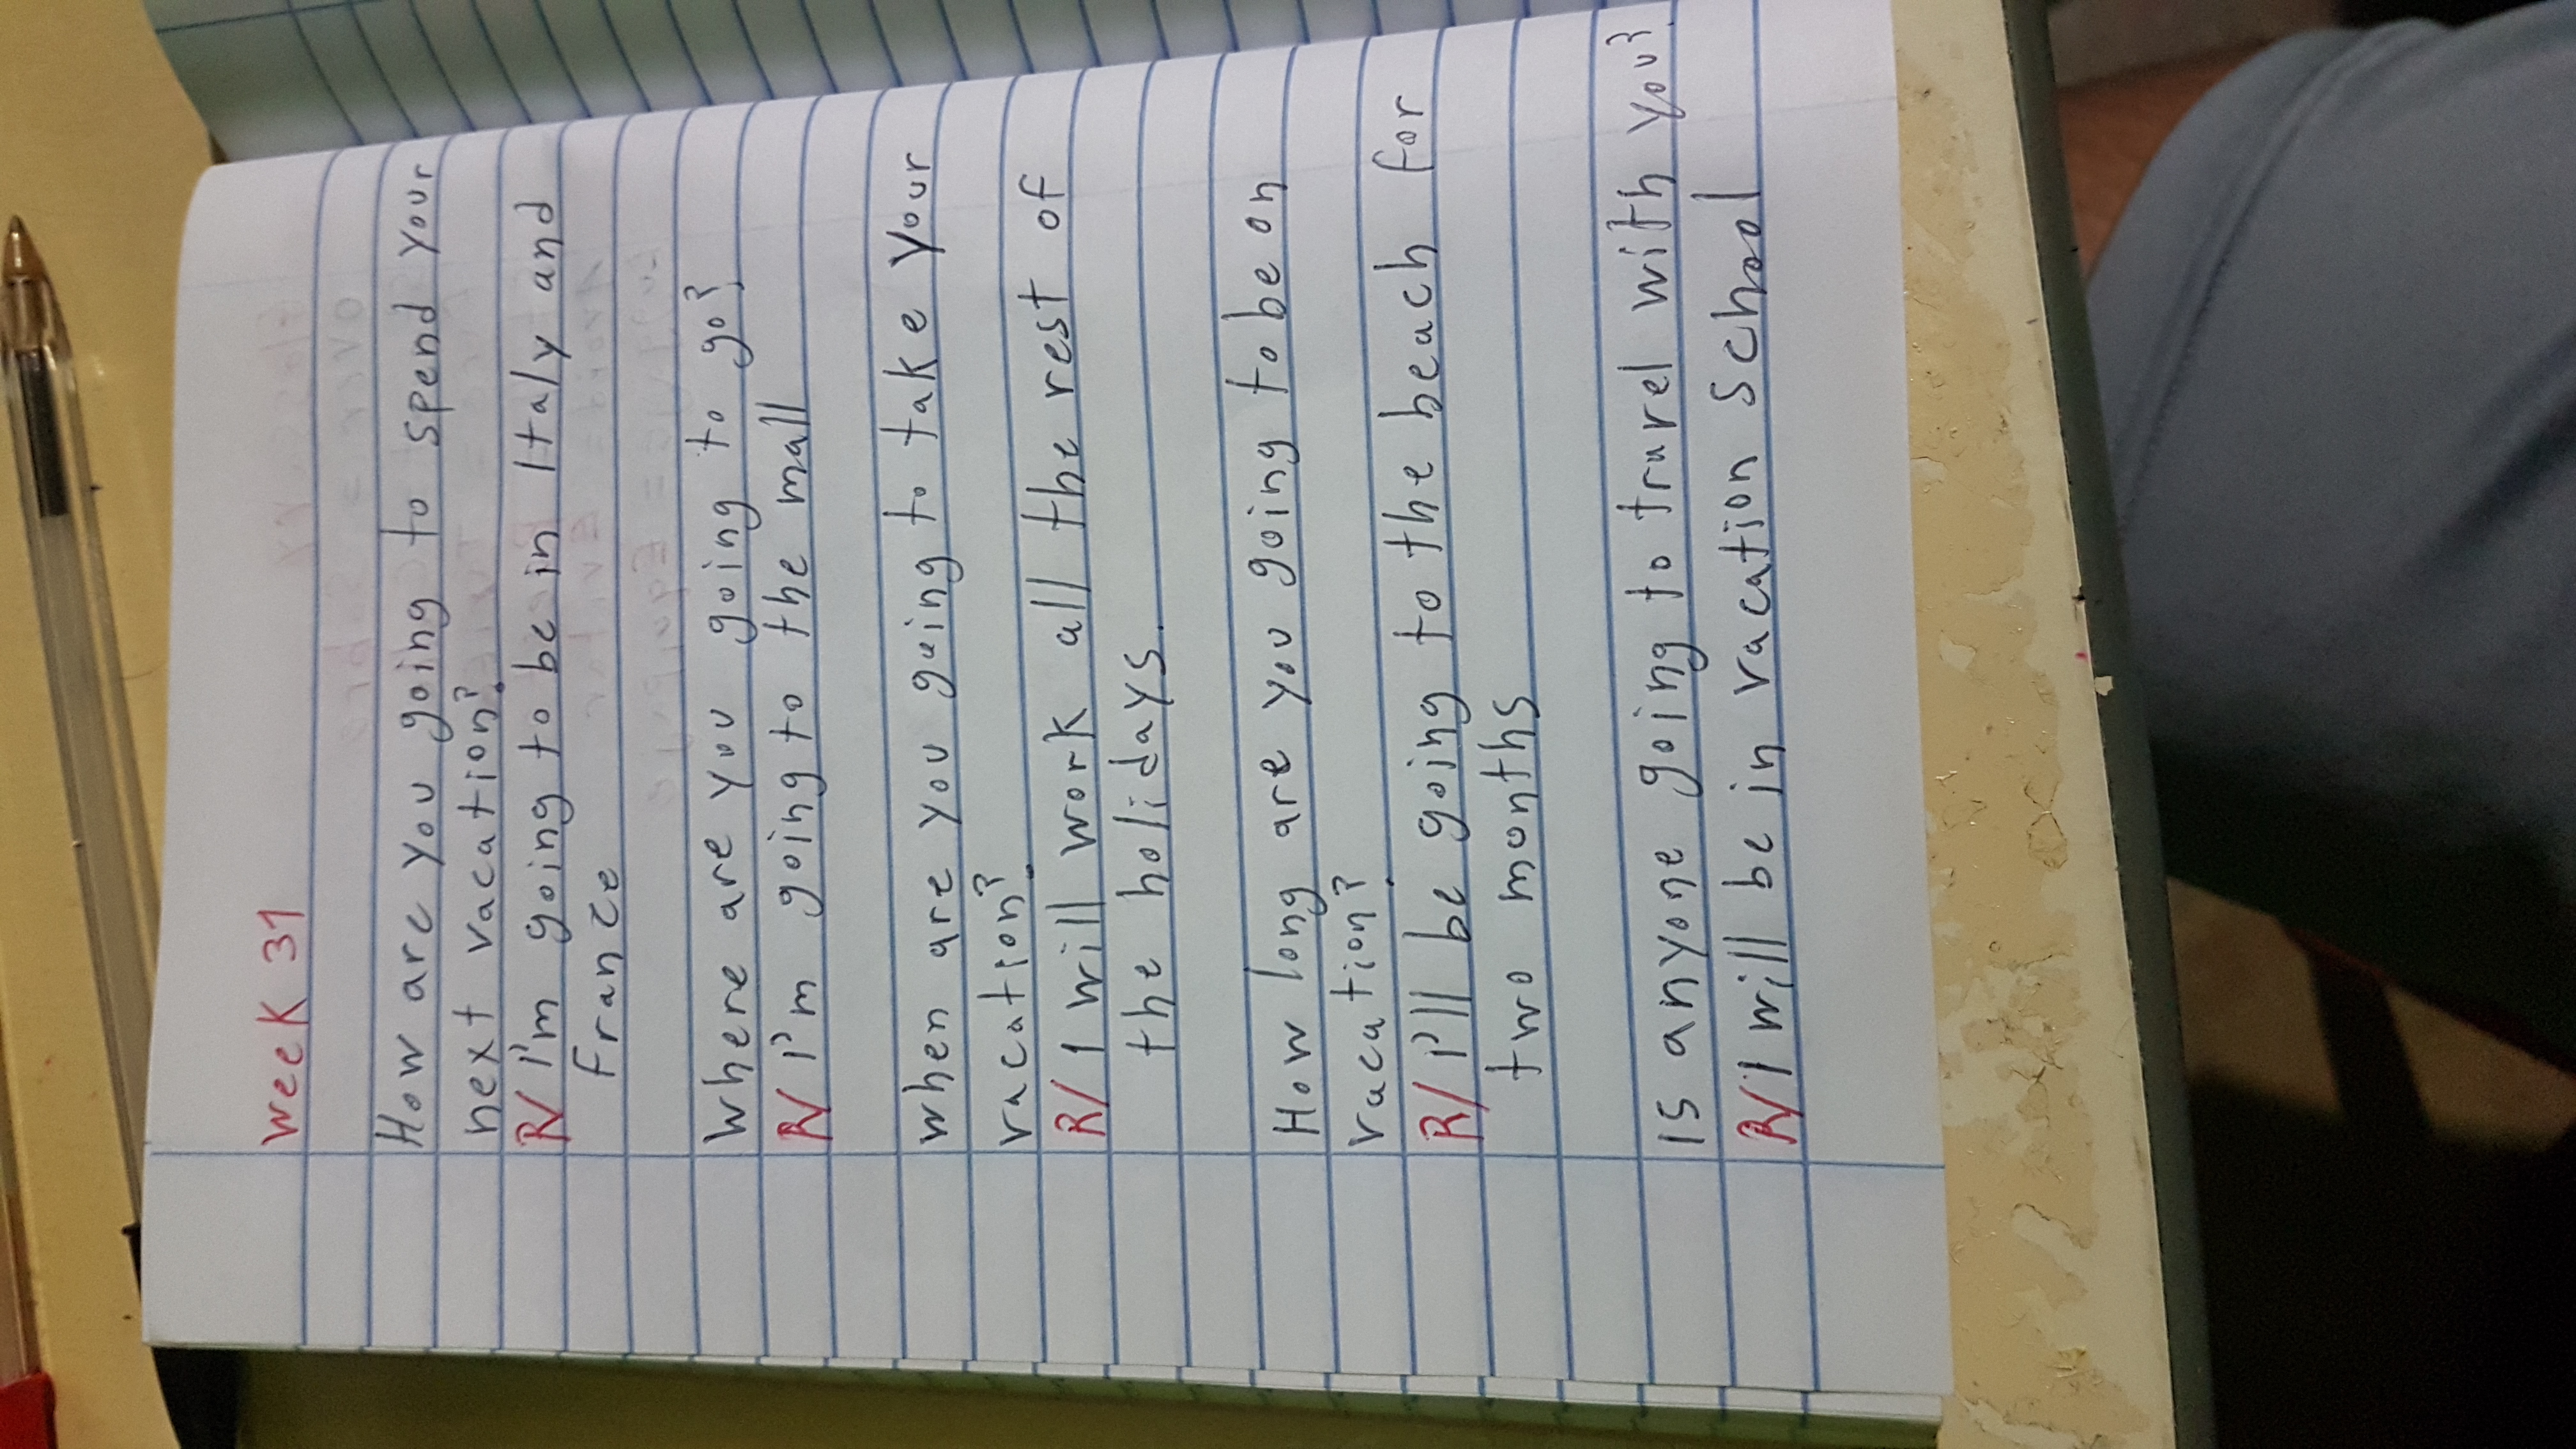 Week 31
How are you going to spend your
next vacation?
R/ I'm going to be in Italy and
france
Where are you going to go?
R/ I'm going to the mall
When are you going to take your
vacation?
R/ I will work all the rest of
the holidays.
How long are you going to be on
vacation?
R/ I'll be going to the beach for
two months
Is anyone going to travel with you?
R/ I will be in vacation school